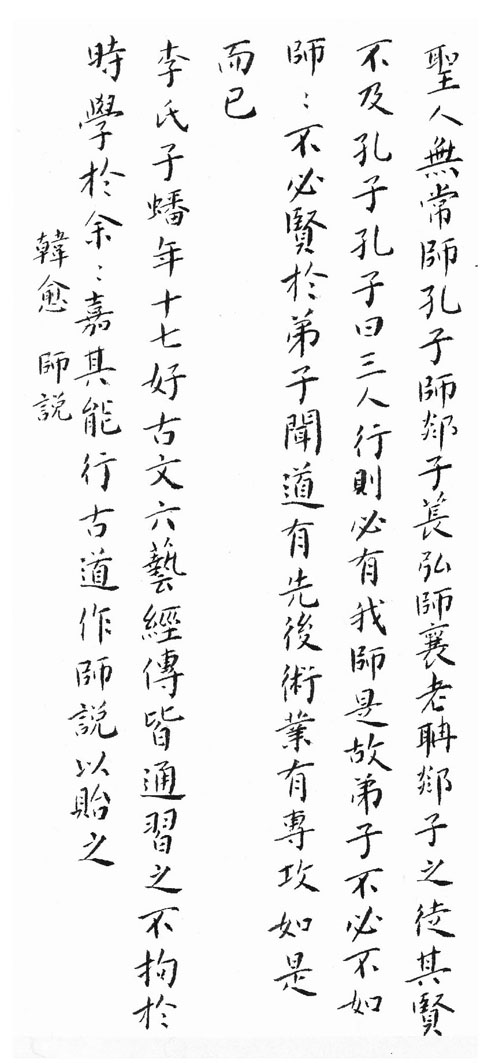 聖人無常師孔子師郯子萇弘師襄老聃郯子之徒其賢
不及孔子孔子曰三人行則必有我師是故弟子不必不如
師：不必賢於弟子聞道有先後術業有專攻如是
而已
李氏子蟠年十七好古文六藝經傳皆通習之不拘於
時學於余：嘉其能行古道作師說以貽之
韓愈 師說